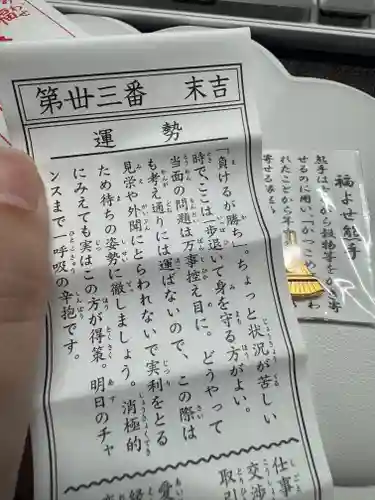 第丗三番 末吉
運勢
「負けるが勝ち」。ちょっと状況が苦しい
時で、ここは一歩退いて身を守る方がよい。
当面の問題は万事控え目に。どうやって
も考え通りには運ばないので、この際は
見栄や外聞にとらわれないで実利をとる
ため待ちの姿勢に徹しましょう。消極的
にみえても実はこの方が得策。明日のチャ
ンスまで一呼吸の辛抱です。
仕事
交渉
取引
愛
縁
福よせ熊手
熊手はもともと穀物等をかき寄
せるのに用い、「かっこめ
れたことから
寄せる